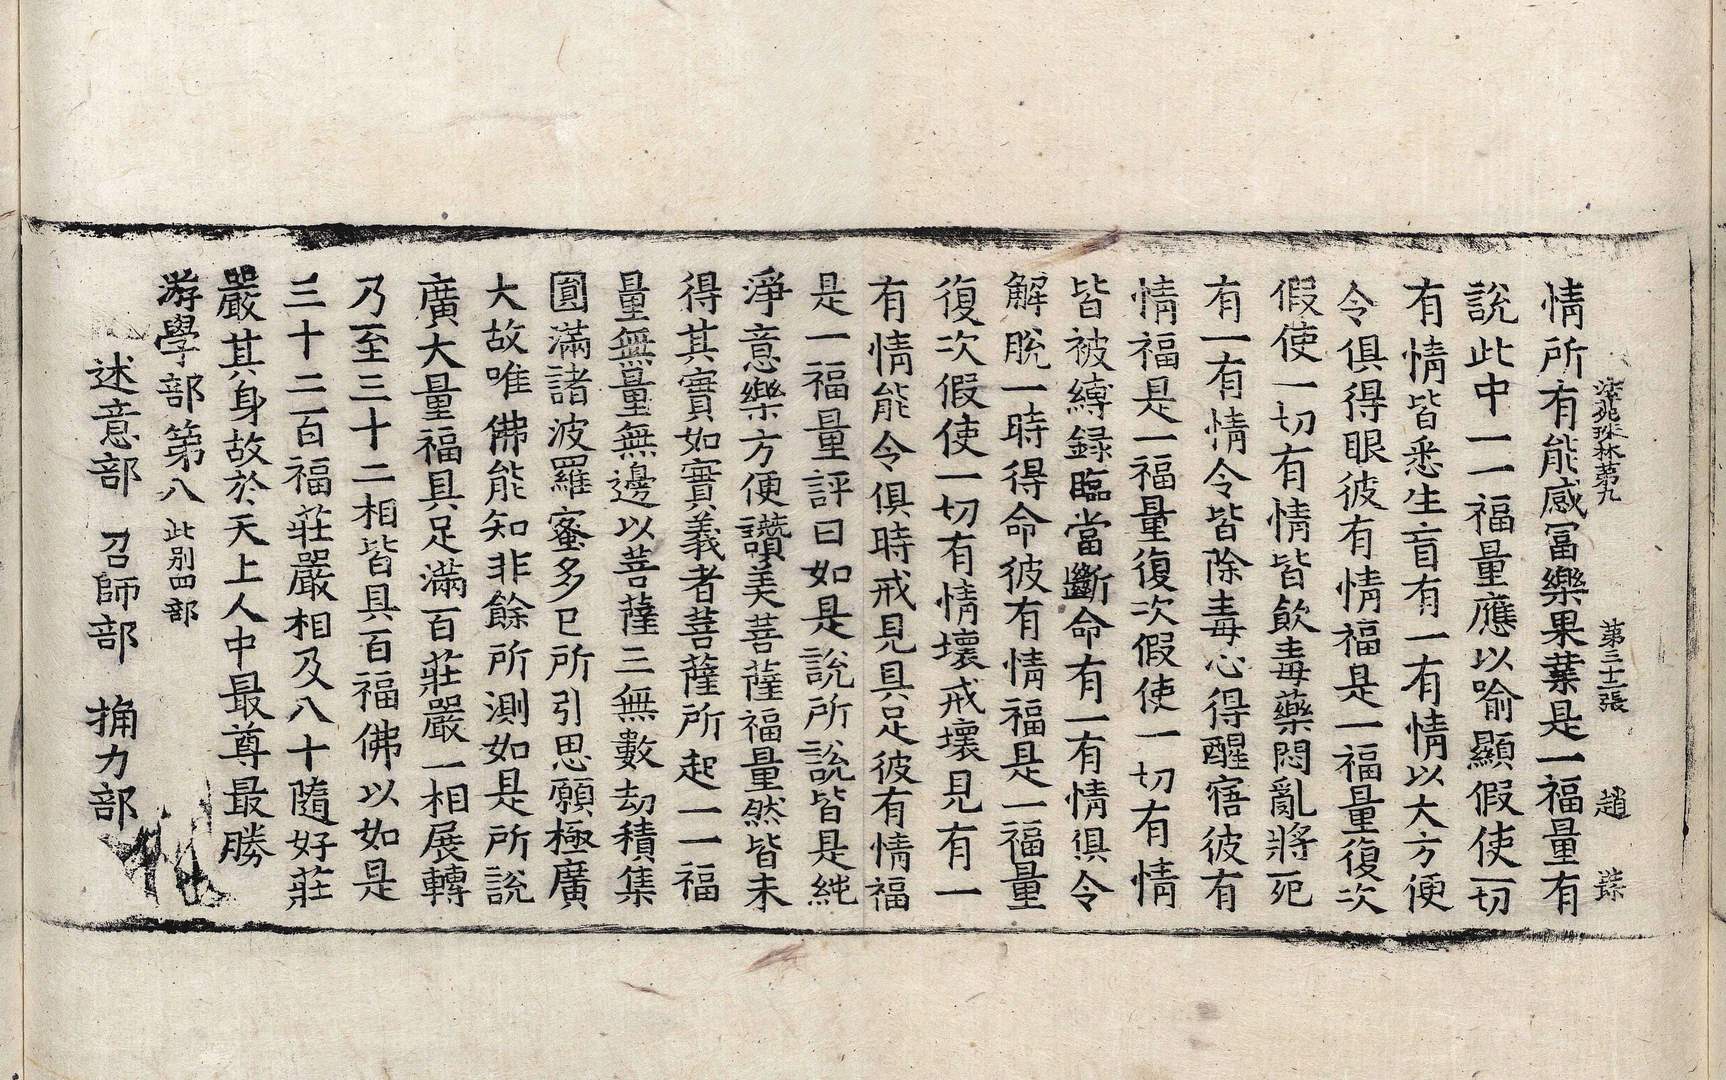 法苑珠林第九 第三十二張 趙 蕖
情所有能感冨樂果葉是一福量有
說此中一一福量應以喻顯假使一切
有情皆悉生盲有一有情以大方便
令俱得眼彼有情福是一福量復次
假使一切有情皆飲毒藥悶亂將死
有一有情令皆除毒心得醒寤彼有
情福是一福量復次假使一切有情
皆被縛録臨當斷命有一有情俱令
解脫一時得命彼有情福是一福量
復次假使一切有情壞戒壞見有一
有情能令俱時戒見具足彼有情福
是一福量評曰如是說所說皆是純
淨意樂方便讚美菩薩福量然皆未
得其實如實義者菩薩所起一一福
量無量無邊以菩薩三無數劫積集
圓滿諸波羅蜜多已所引思願極廣
大故唯佛能知非餘所測如是所說
廣大量福具足滿百莊嚴一相展轉
乃至三十二相皆具百福佛以如是
三十二百福莊嚴相及八十隨好莊
嚴其身故於天上人中最尊最勝
游學部第八 此别四部
述意部 召師部 捔力部